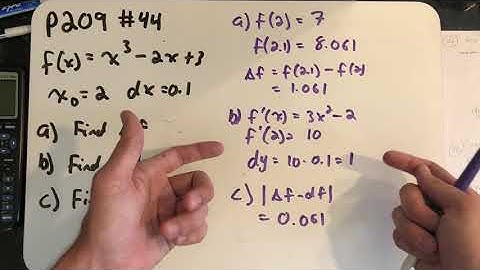 P209 #44
f(x) = x³ - 2x + 3
x₀ = 2 dx = 0.1
a) Find
b) Find
c)
a) f(2) = 7
f(2.1) = 8.061
Δf = f(2.1) - f(2)
= 1.061
b) f'(x) = 3x² - 2
f'(2) = 10
dy = 10 · 0.1 = 1
c) |Δf - df|
= 0.061